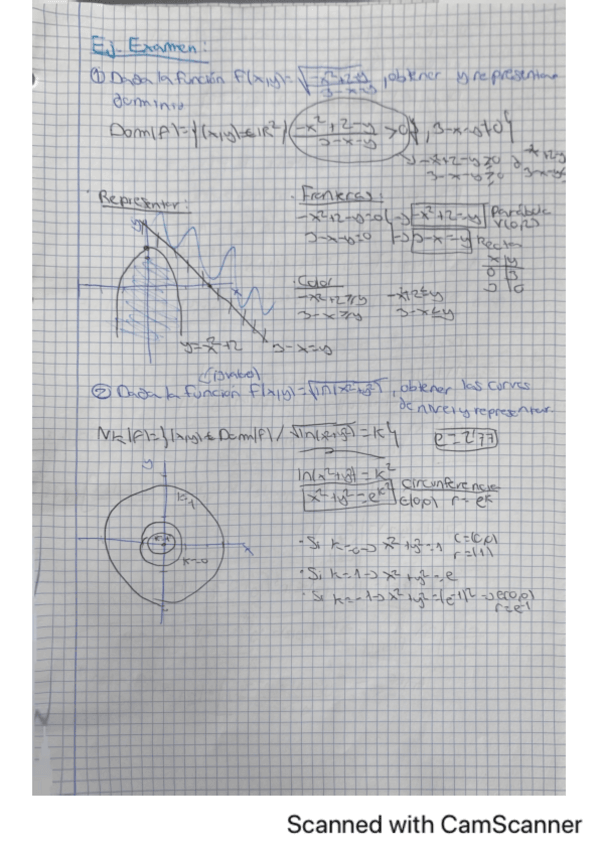 Ej. Examen:
① Dada la función f(x,y)=√(-x²+2-y / 3-x-y), obtener y representar
dominio
Dom(f)={(x,y)∈ℝ² / -x²+2-y / 3-x-y ≥0, 3-x-y≠0}
-x²+2-y≥0
3-x-y≥0
· Representar:
· Fronteras:
-x²+2-y=0 → -x²+2=y Parábola
V(0,2)
3-x-y=0 → 3-x=y Recta
x | y
0 | 3
3 | 0
· Color
-x²+2≥y -x²+2≤y
3-x≥y 3-x≤y
y=-x²+2 3-x=y
② Dada la función f(x,y)=√ln(x²+y²), obtener las curvas
de nivel y representar.
Nk(f)={(x,y)∈Dom(f) / √ln(x²+y²) = k} e=2'77
ln(x²+y²)=k²
x²+y²=e^k² Circunferencia
C(0,0) r=e^k
y
k=1
k=0
x
· Si k=0→ x²+y²=1 C=(0,0)
r=(1)
· Si k=1→ x²+y²=e
· Si k=-1→ x²+y²=(e-1)² → C(0,0)
r=e-1
Scanned with CamScanner